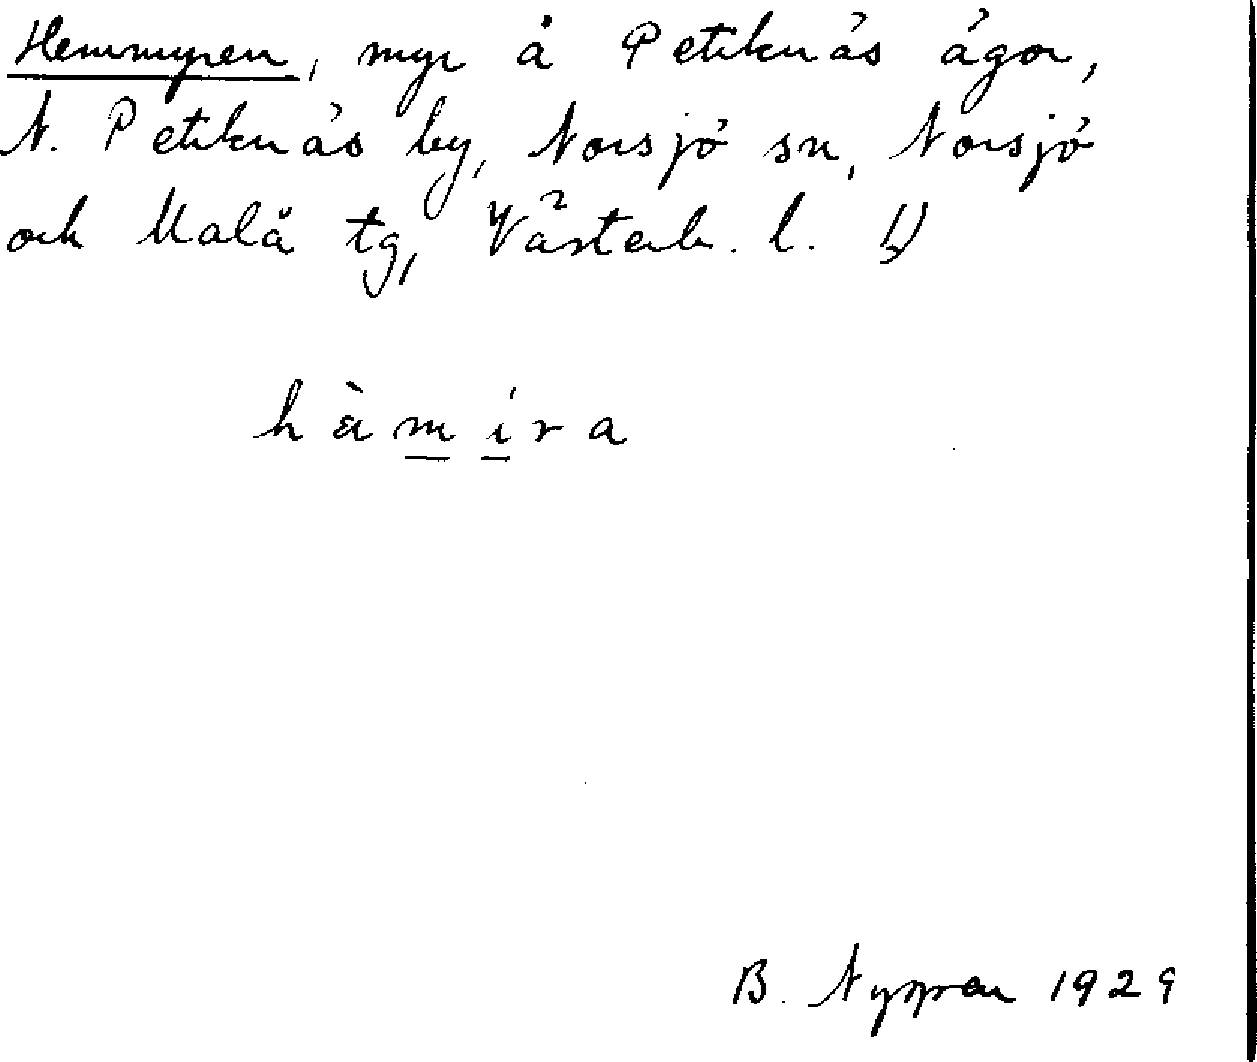 Hemmyren, myr å Petiknäs ägor,
N. Petiknäs by, Norsjö sn, Norsjö
och Malå tg, Västerb. l.
hæ̀míra
B. 1929